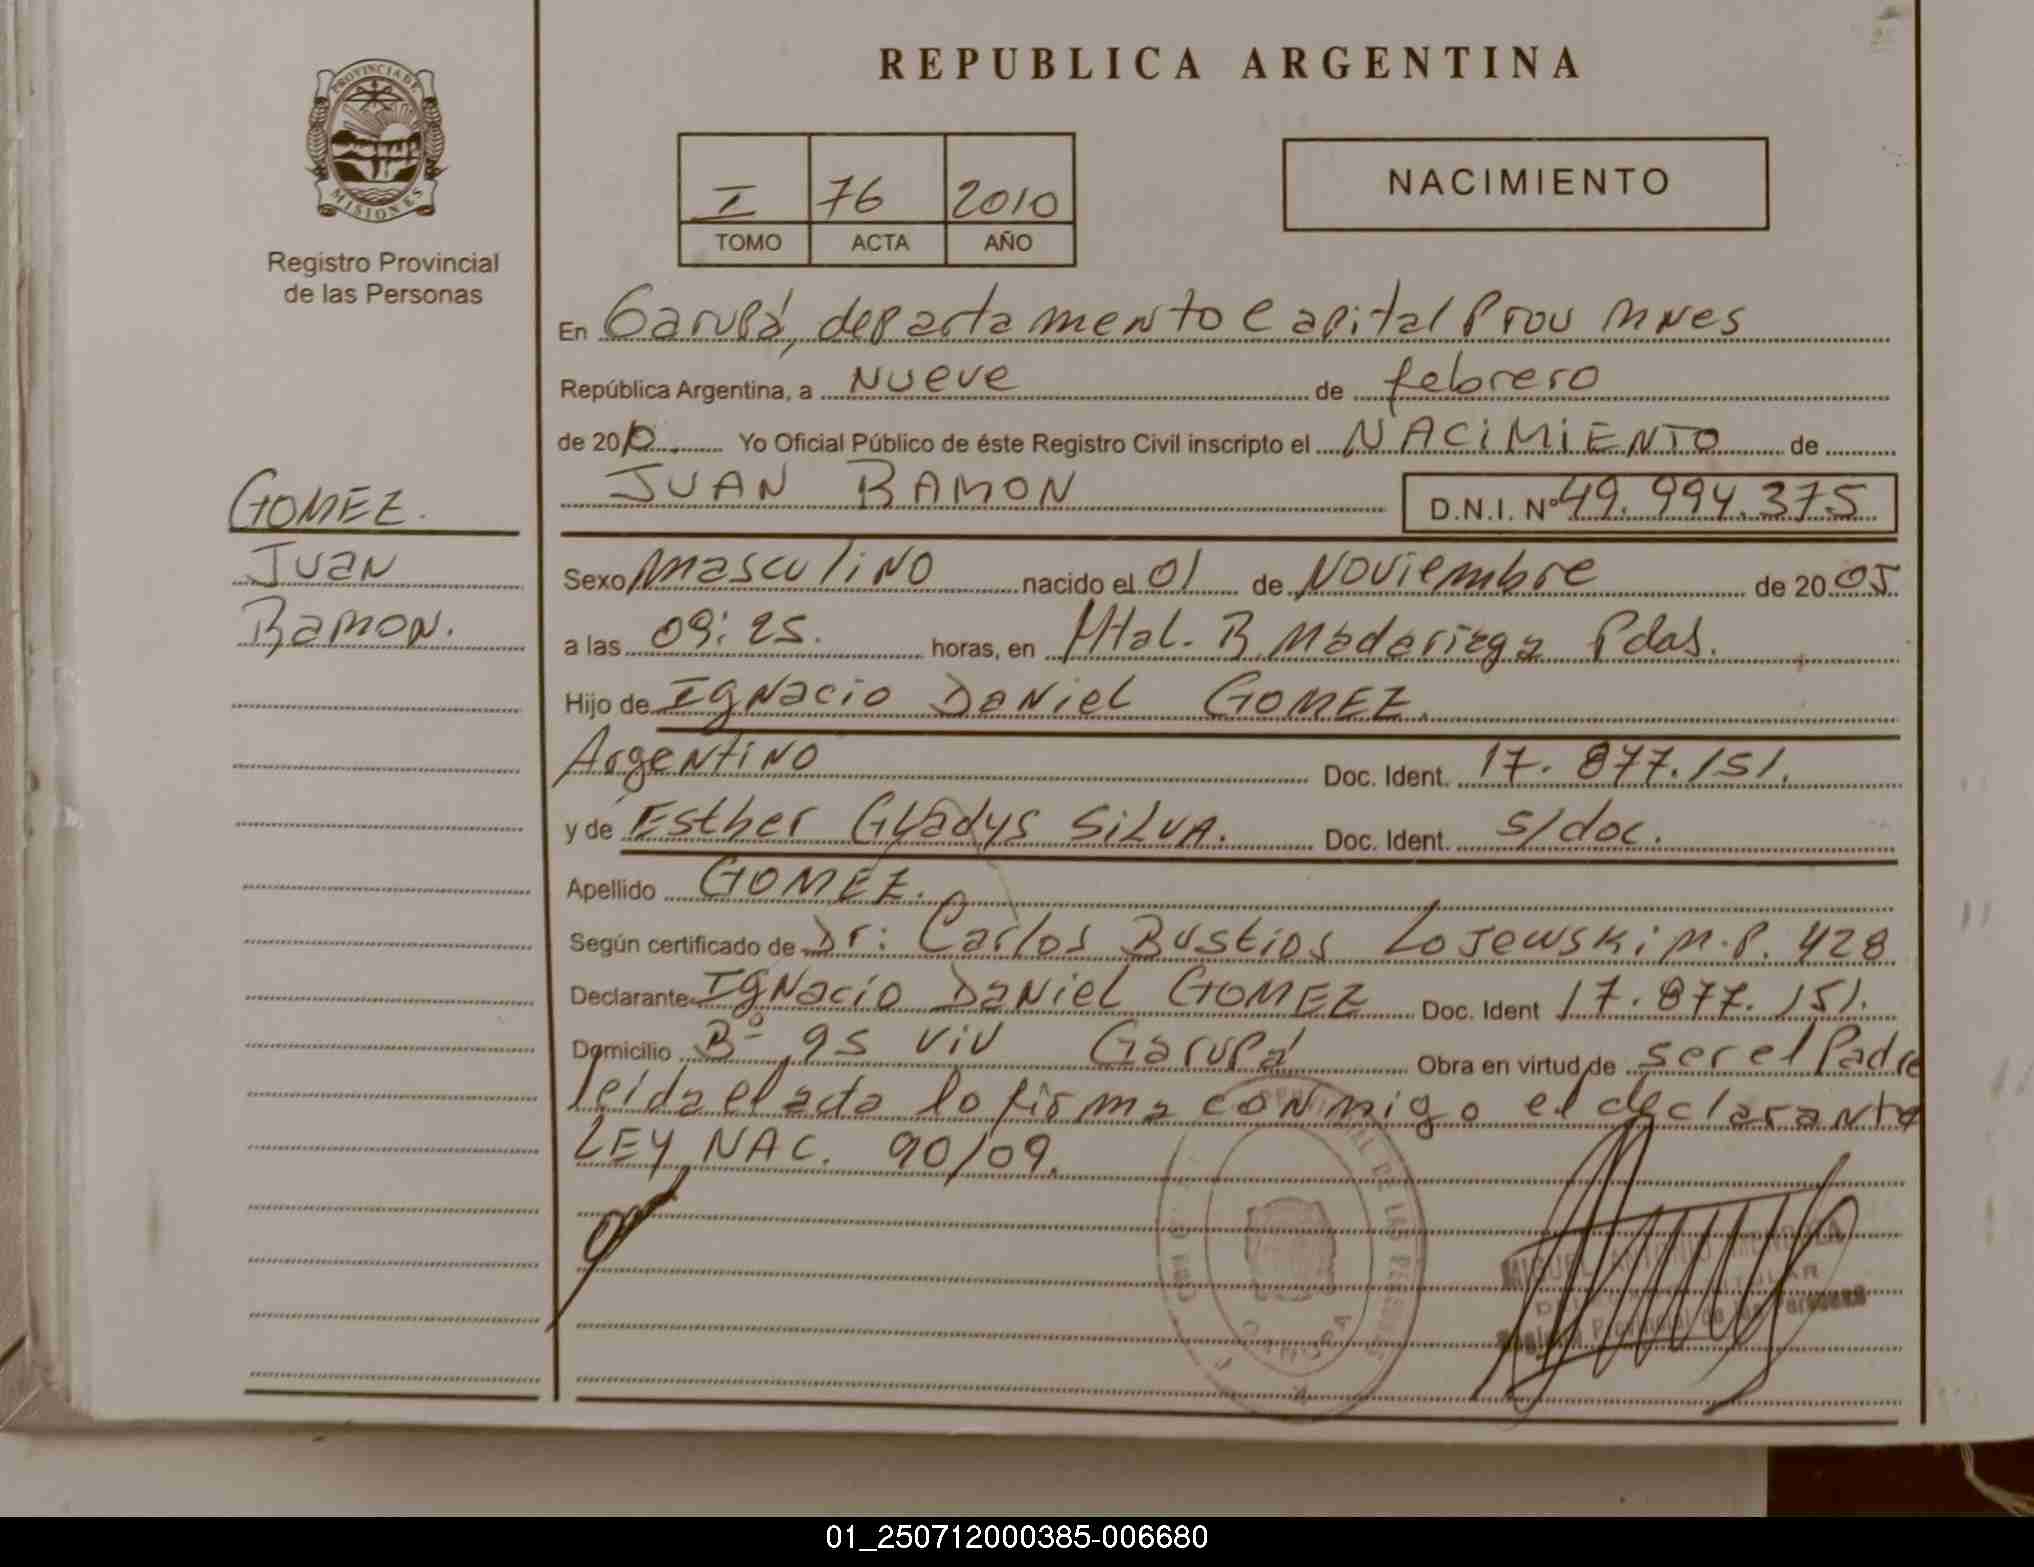 REPUBLICA ARGENTINA
PROVINCIA DE
MISIONES
Registro Provincial
de las Personas
I 76 2010
TOMO ACTA AÑO
NACIMIENTO
En Garupá, departamento Capital Prov Mnes
República Argentina, a Nueve de febrero
de 2010. Yo Oficial Público de éste Registro Civil inscripto el NACIMIENTO de
JUAN RAMON D.N.I. Nº 49.994.375
GOMEZ.
Juan
Ramon.
Sexo masculino nacido el 01 de Noviembre de 2005
a las 09:25. horas, en Htal. R Madariaga Pdas.
Hijo de Ignacio Daniel GOMEZ.
Argentino Doc. Ident. 17.877.151.
y de Esther Gladys SILVA. Doc. Ident. s/doc.
Apellido GOMEZ.
Según certificado de Dr: Carlos Bustios Lojewski M.P. 428
Declarante Ignacio Daniel GOMEZ Doc. Ident 17.877.151.
Domicilio Bº 95 viv Garupá Obra en virtud de ser el Padre
leida el acta lo firma conmigo el declarante
LEY NAC. 90/09.
MIGUEL ANTONIO
TITULAR
Provincial de las Personas
01_250712000385-006680